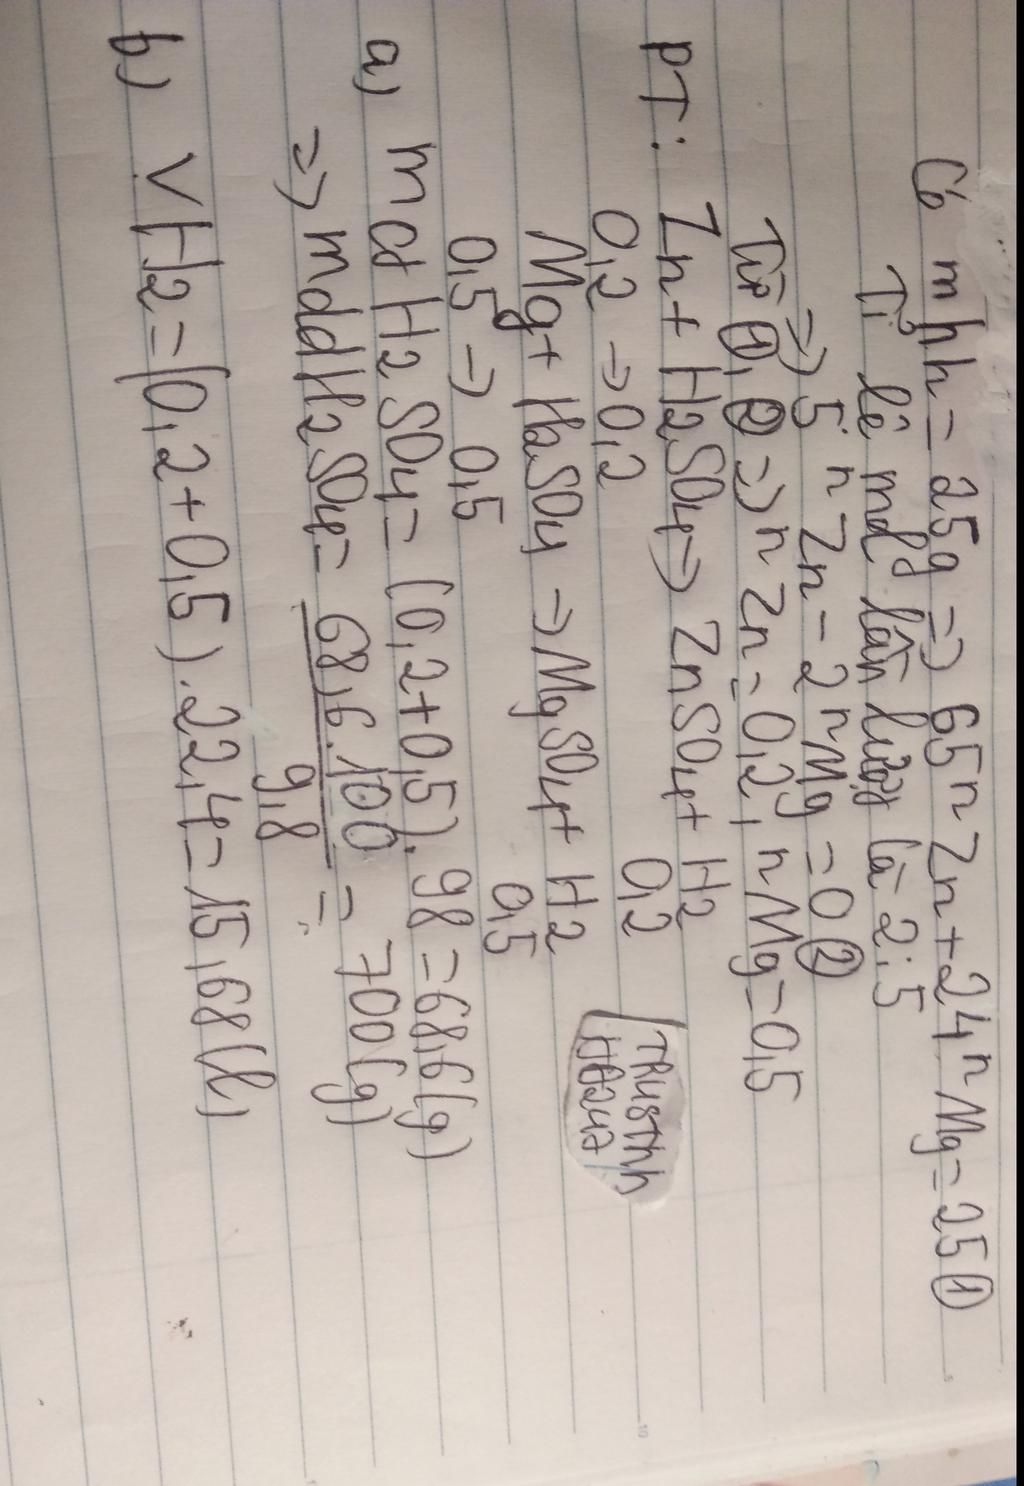 Có mhh = 25g => 65nZn + 24nMg = 25 ①
Tỉ lệ mol lần lượt là 2:5
=> 5nZn - 2nMg = 0 ②
Từ ①, ② => nZn = 0,2, nMg = 0,5
PT: Zn + H2SO4 -> ZnSO4 + H2
0,2 -> 0,2 0,2
Mg + H2SO4 -> MgSO4 + H2
0,5 -> 0,5 0,5
a) mct H2SO4 = (0,2 + 0,5). 98 = 68,6(g)
=> mddH2SO4 = 68,6.100 = 700(g)
9,8
b) VH2 = (0,2 + 0,5). 22,4 = 15,68(l)